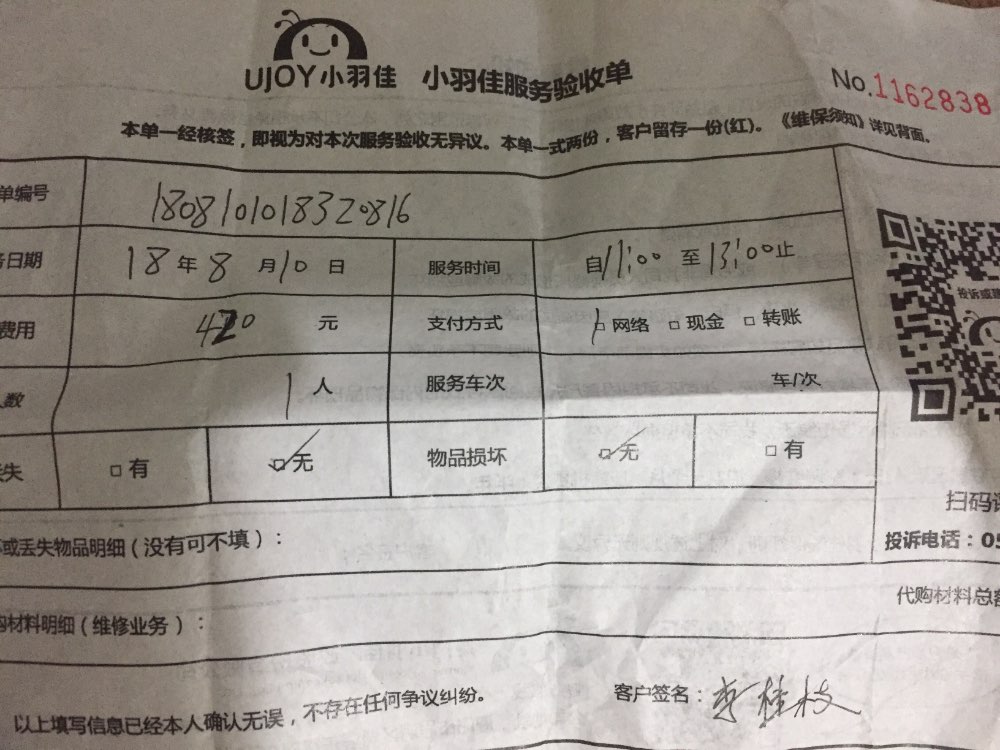 UJOY小羽佳 小羽佳服务验收单
No.1162838
本单一经核签，即视为对本次服务验收无异议。本单一式两份，客户留存一份(红)。《维保须知》详见背面。
单编号 1808101018320816
务日期 18年8月10日 服务时间 自11:00至13:00止
费用 420 元 支付方式 □网络 □现金 □转账
人数 1人 服务车次 车/次
失 □有 □无 物品损坏 □无 □有
投诉或
扫码
坏或丢失物品明细（没有可不填）：
投诉电话：05
购材料明细（维修业务）：
代购材料总
以上填写信息已经本人确认无误，不存在任何争议纠纷。
客户签名：李桂枝